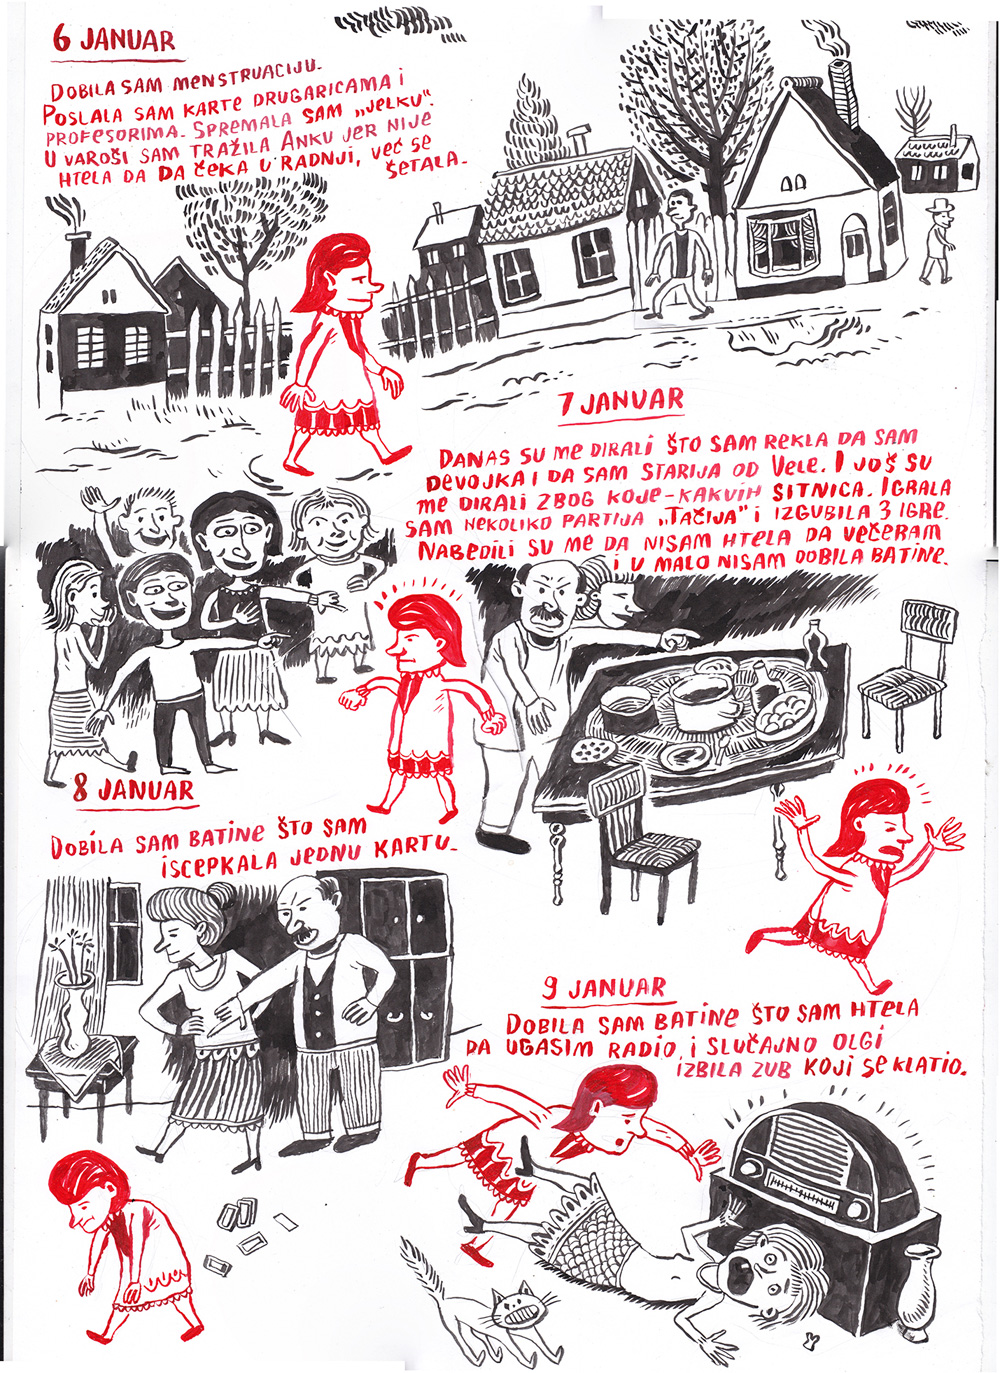 6 JANUAR
DOBILA SAM MENSTRUACIJU.
POSLALA SAM KARTE DRUGARICAMA I
PROFESORIMA. SPREMALA SAM „JELKU“.
U VAROŠI SAM TRAŽILA ANKU JER NIJE
HTELA DA DA ČEKA U RADNJI, VEĆ SE
ŠETALA.
7 JANUAR
DANAS SU ME DIRALI ŠTO SAM REKLA DA SAM
DEVOJKA I DA SAM STARIJA OD VELE. I JOŠ SU
ME DIRALI ZBOG KOJE-KAKVIH SITNICA. IGRALA
SAM NEKOLIKO PARTIJA „TAČIJA“ I IZGUBILA 3 IGRE.
NABEDILI SU ME DA NISAM HTELA DA VEČERAM
I U MALO NISAM DOBILA BATINE.
8 JANUAR
DOBILA SAM BATINE ŠTO SAM
ISCEPKALA JEDNU KARTU.
9 JANUAR
DOBILA SAM BATINE ŠTO SAM HTELA
DA UGASIM RADIO, I SLUČAJNO OLGI
IZBILA ZUB KOJI SE KLATIO.